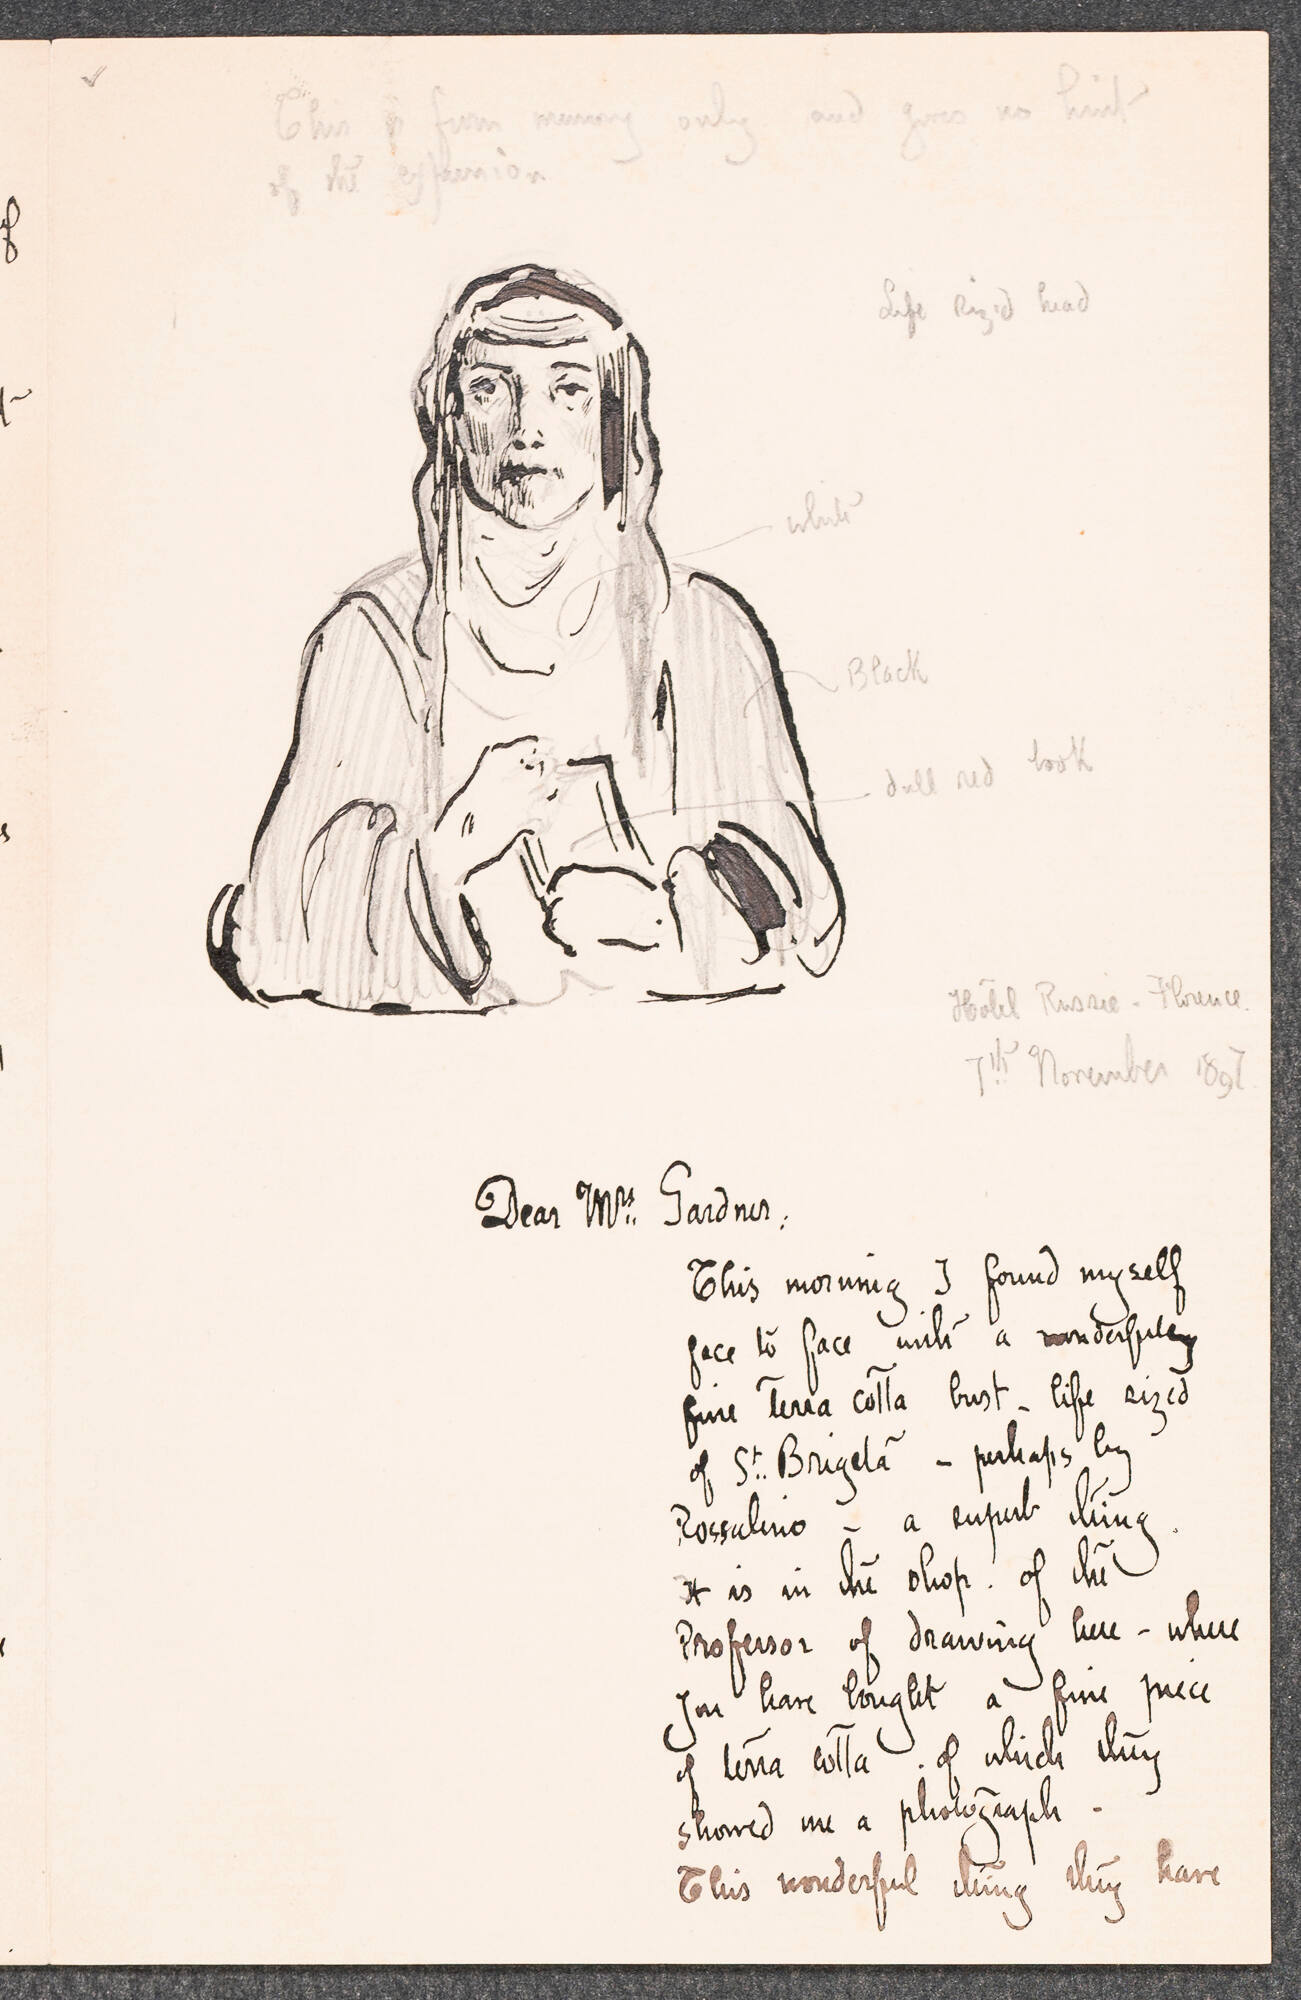 This is from memory only and gives no hint
of the expression
Life sized head
white
Black
dull red book
Hôtel Russie - Florence.
7th November 1897
Dear Mrs. Gardner,
This morning I found myself
face to face with a wonderfully
fine terra cotta bust - life sized
of St. Brigeta - perhaps by
Rossalino - a superb thing.
It is in the shop. of the
Professor of drawing here - where
you have bought a fine piece
of terra cotta. of which they
showed me a photograph -
This wonderful thing they have